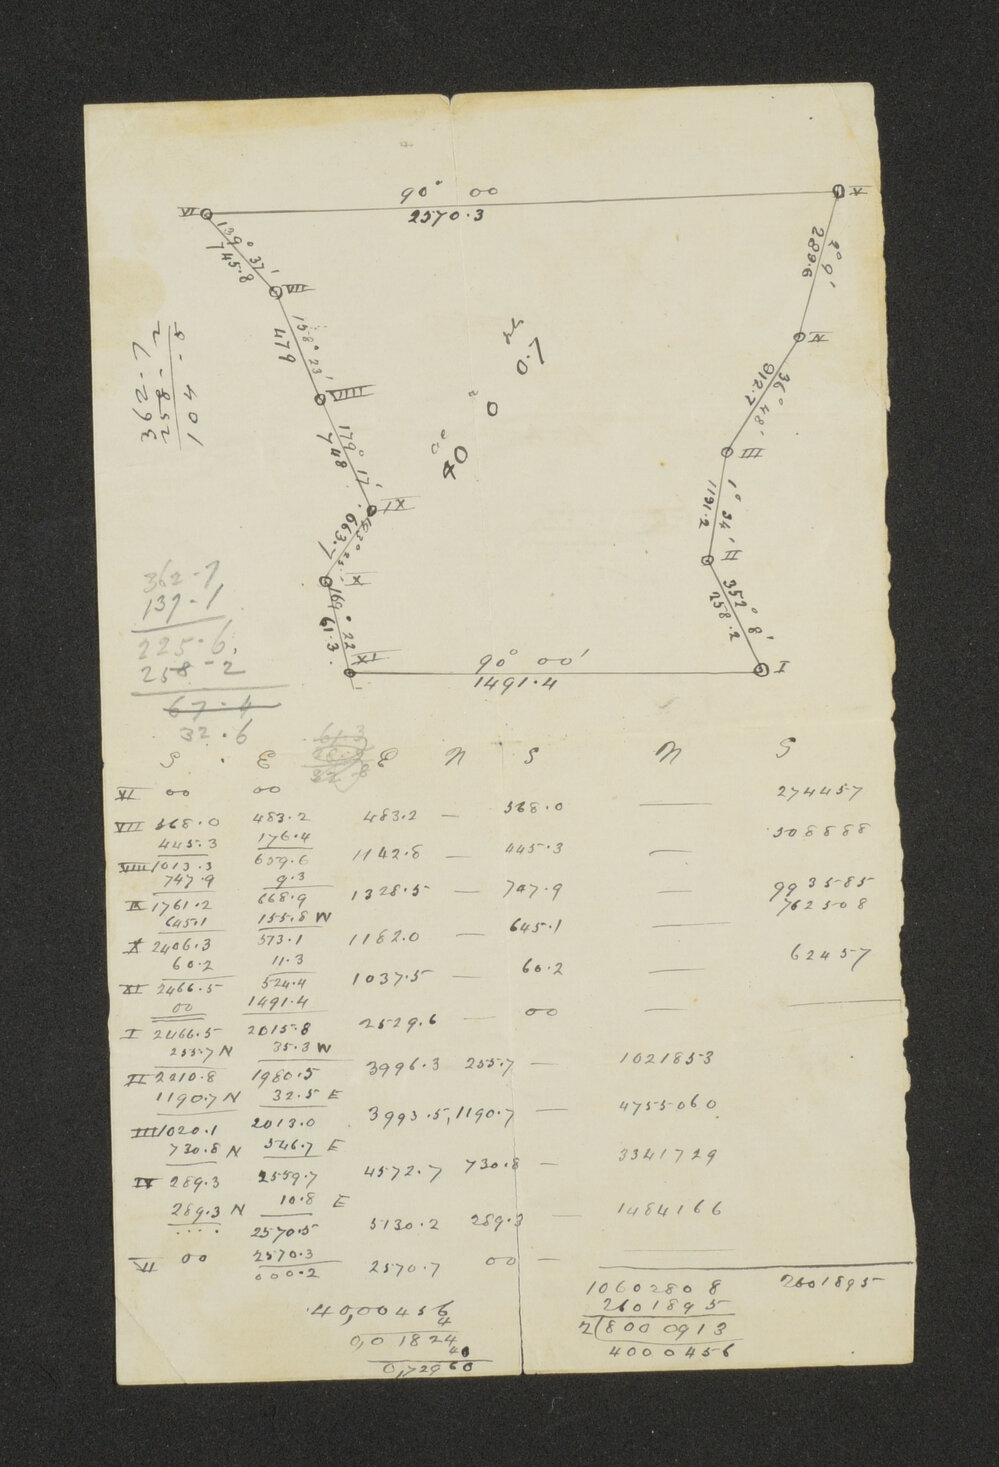 90° 00
2570.3
VI
V
139° 37'
745.8
2° 9'
289.6
VII
158° 23'
479
IV
36° 48'
912.7
VIII
179° 17'
748
III
1° 34'
1191.2
IX
663.7
II
352° 8'
258.2
X
169° 22
61.3
XI
I
90° 00'
1491.4
40
0
0.7
362-7
258-2
104-5
362-7
137-1
225-6
258-2
67.4
32.6
61.3
32.8
S E E N S N S
VI 00 00 274457
VII 568.0 483.2 483.2 — 568.0 —
508888
445.3 176.4
VIII 1013.3 659.6 1142.8 — 445.3 —
747.9 9.3
993585
IX 1761.2 668.9 1328.5 — 747.9 —
762508
645.1 155.8 W
X 2406.3 573.1 1182.0 — 645.1 —
60.2 11.3
62457
XI 2466.5 524.4 1037.5 — 60.2 —
00 1491.4
I 2466.5 2015.8 2529.6 — 00 —
255.7 N 35.3 W
II 2210.8 1980.5 3996.3 255.7 — 1021853
1190.7 N 32.5 E
III 1020.1 2013.0 3993.5, 1190.7 — 4755060
730.8 N 546.7 E
IV 289.3 2559.7 4572.7 730.8 — 3341729
289.3 N 10.8 E
.... 2570.5 5130.2 289.3 — 1484166
VI 00 2570.3
000.2 2570.7 00 —
10602808 2601895
2601895
2(8000913
4000456
40,00456
4
0,01824
40
0,72960